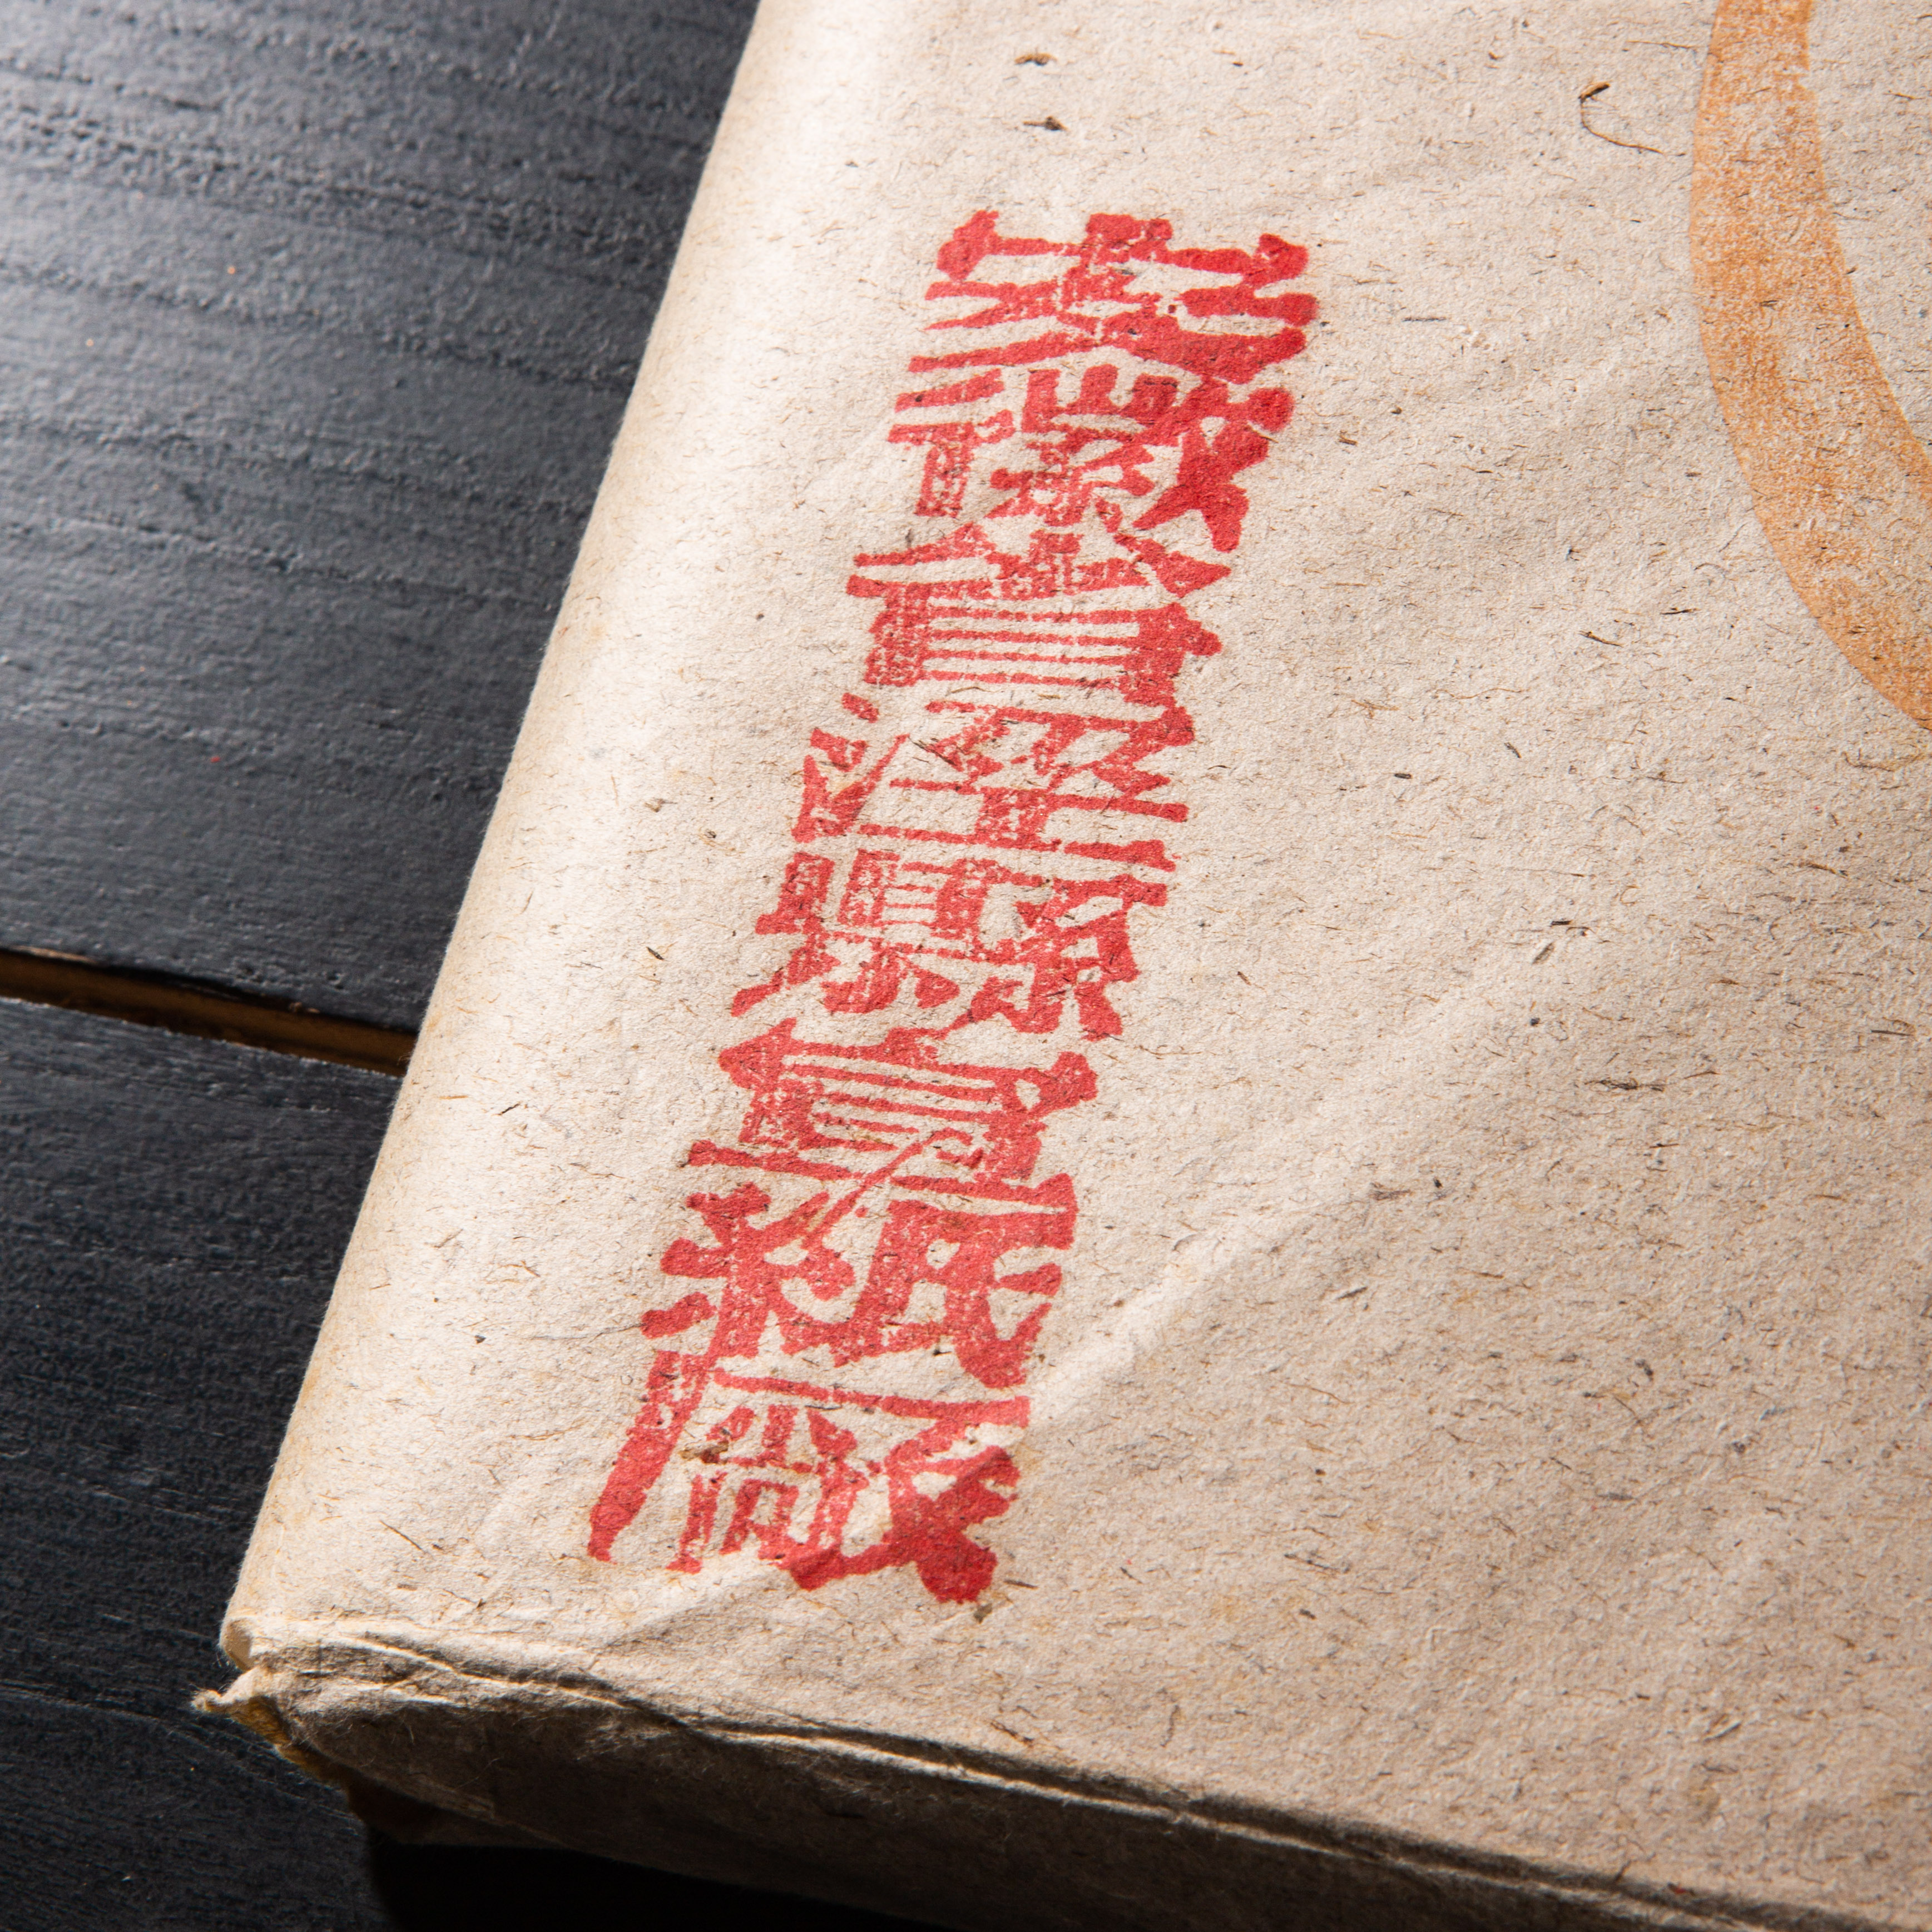 安徽省涇縣宣紙廠